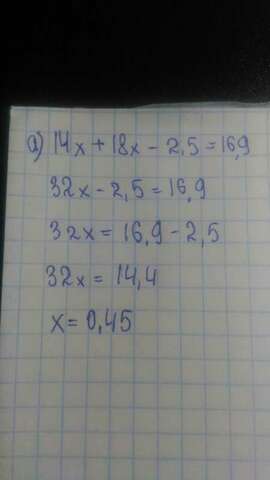 а) 14x + 18x - 2,5 = 16,9
32x - 2,5 = 16,9
32x = 16,9 - 2,5
32x = 14,4
x = 0,45